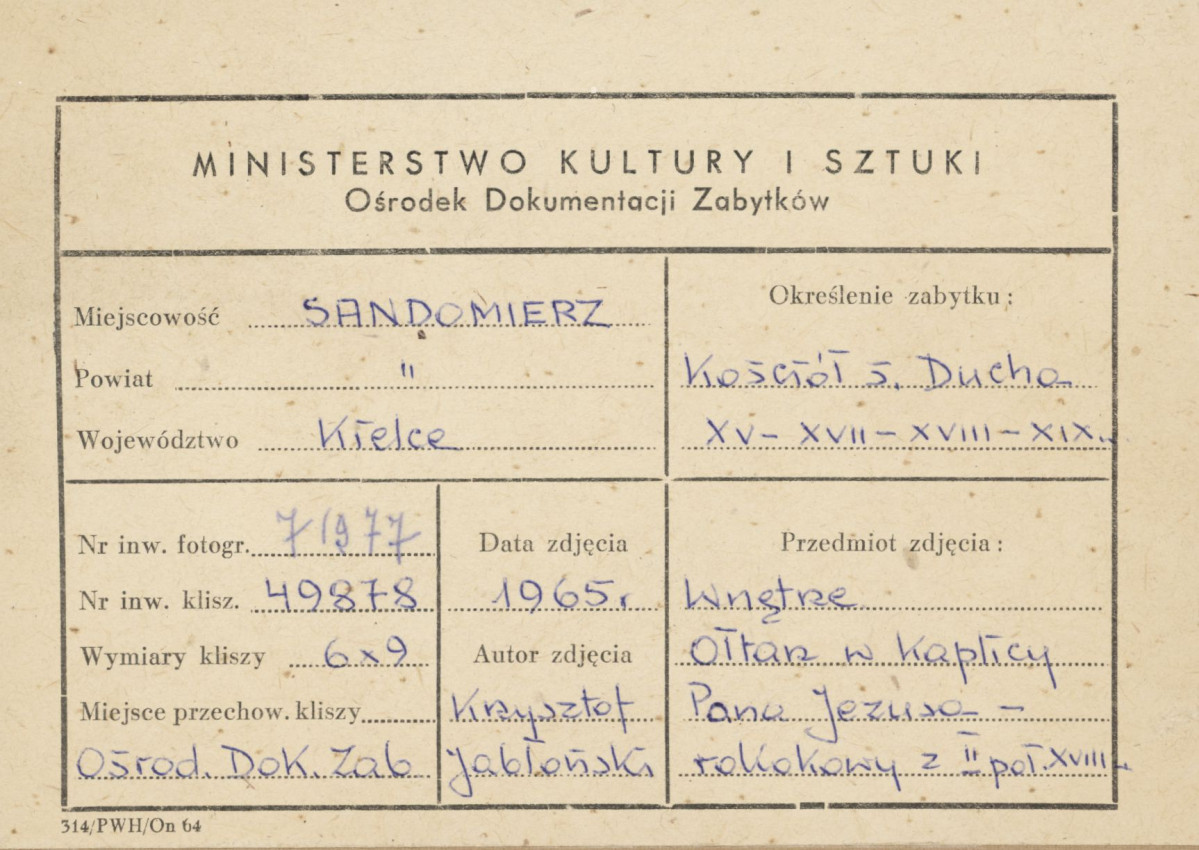 MINISTERSTWO KULTURY I SZTUKI
Ośrodek Dokumentacji Zabytków
Miejscowość SANDOMIERZ
Powiat "
Województwo Kielce
Określenie zabytku:
Kościół ś. Ducha
XV – XVII – XVIII – XIX.
Nr inw. fotogr. 71977
Nr inw. klisz. 49878
Wymiary kliszy 6x9
Miejsce przechow. kliszy
Ośrod. Dok. Zab
Data zdjęcia
1965.
Autor zdjęcia
Krzysztof
Jabłoński
Przedmiot zdjęcia:
Wnętrze
Ołtarz w Kaplicy
Pana Jezusa –
rokokowy z II poł. XVIII.
314/PWH/On 64